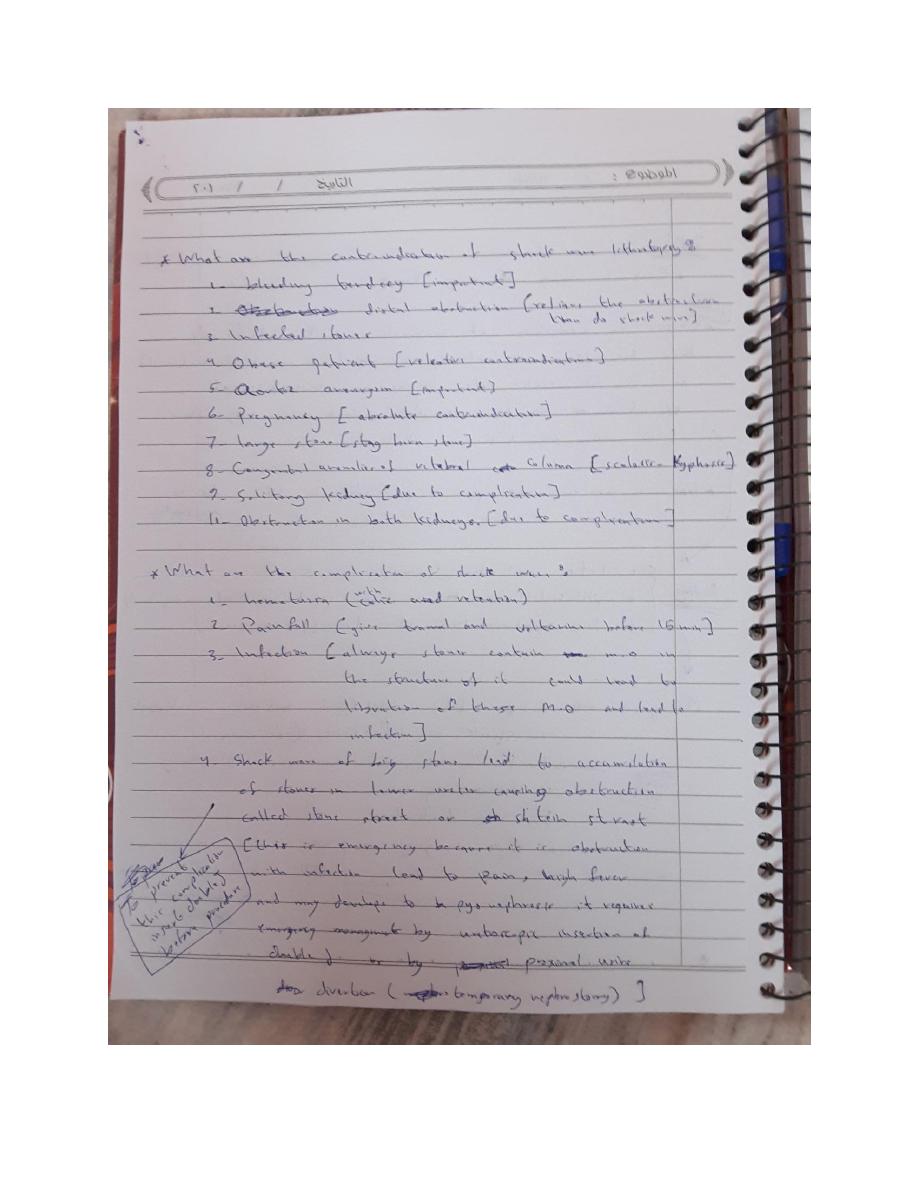 الموضوع :
التاريخ / / ٢٠١
* What are the contraindication of shock wave lithotripsy :
1- bleeding tendecy [important]
2- distal obstruction [relieve the obstruction
than do shock wave]
3- Infected stones
4- Obese patient [relative contraindication]
5- Aortic aneurysm [important]
6- Pregnancy [absolute contraindication]
7- large stone [stag horn stone]
8- Congenital anomalies of vetebral column [scoliosis - Kyphosis]
9- Solitary kidney [due to complication]
10- Obstruction in both kidneys [due to complication]
* What are the complication of shock wave :
1- hematuria (with colic and retention)
2- Painfull (give tramal and voltarine before 15 min]
3- Infection [always stones contain m.o in
the structure of it could lead to
libration of these M.O and lead to
infection]
4- Shock wave of big stone lead to accumulation
of stones in lower ureter causing obstruction
called stone street or shtein strast
[this is emergency because it is obstruction
with infection lead to pain, high fever
and may develope to pyonephrosis it requires
emergency managment by uretroscopic insertion of
double J or by proximal urine
divertion (temporary nephrostomy) ]
To prevent
this complication
insert double J
before procedure